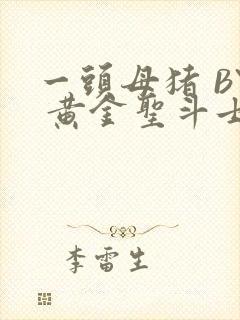 一頭母猪 BY
黄金聖斗士
李雷生